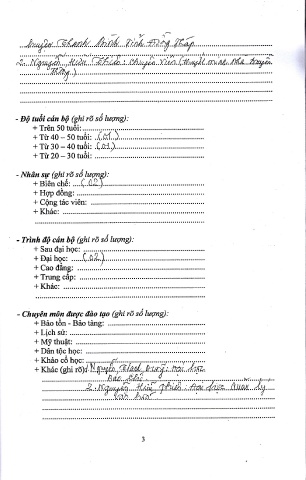 2. Nguyễn Hiếu Thiên: Chuyên viên (thuyết minh nhà truyền
thống).
- Độ tuổi cán bộ (ghi rõ số lượng):
+ Trên 50 tuổi:
+ Từ 40 – 50 tuổi: (01)
+ Từ 30 – 40 tuổi: (01)
+ Từ 20 – 30 tuổi:
- Nhân sự (ghi rõ số lượng):
+ Biên chế: (02)
+ Hợp đồng:
+ Cộng tác viên:
+ Khác:
- Trình độ cán bộ (ghi rõ số lượng):
+ Sau đại học:
+ Đại học: (02)
+ Cao đẳng:
+ Trung cấp:
+ Khác:
- Chuyên môn được đào tạo (ghi rõ số lượng):
+ Bảo tồn - Bảo tàng:
+ Lịch sử:
+ Mỹ thuật:
+ Dân tộc học:
+ Khảo cổ học:
+ Khác (ghi rõ) Nguyễn
2. Nguyễn Hiếu Thiên: Đại học Quản lý
văn hoá
3